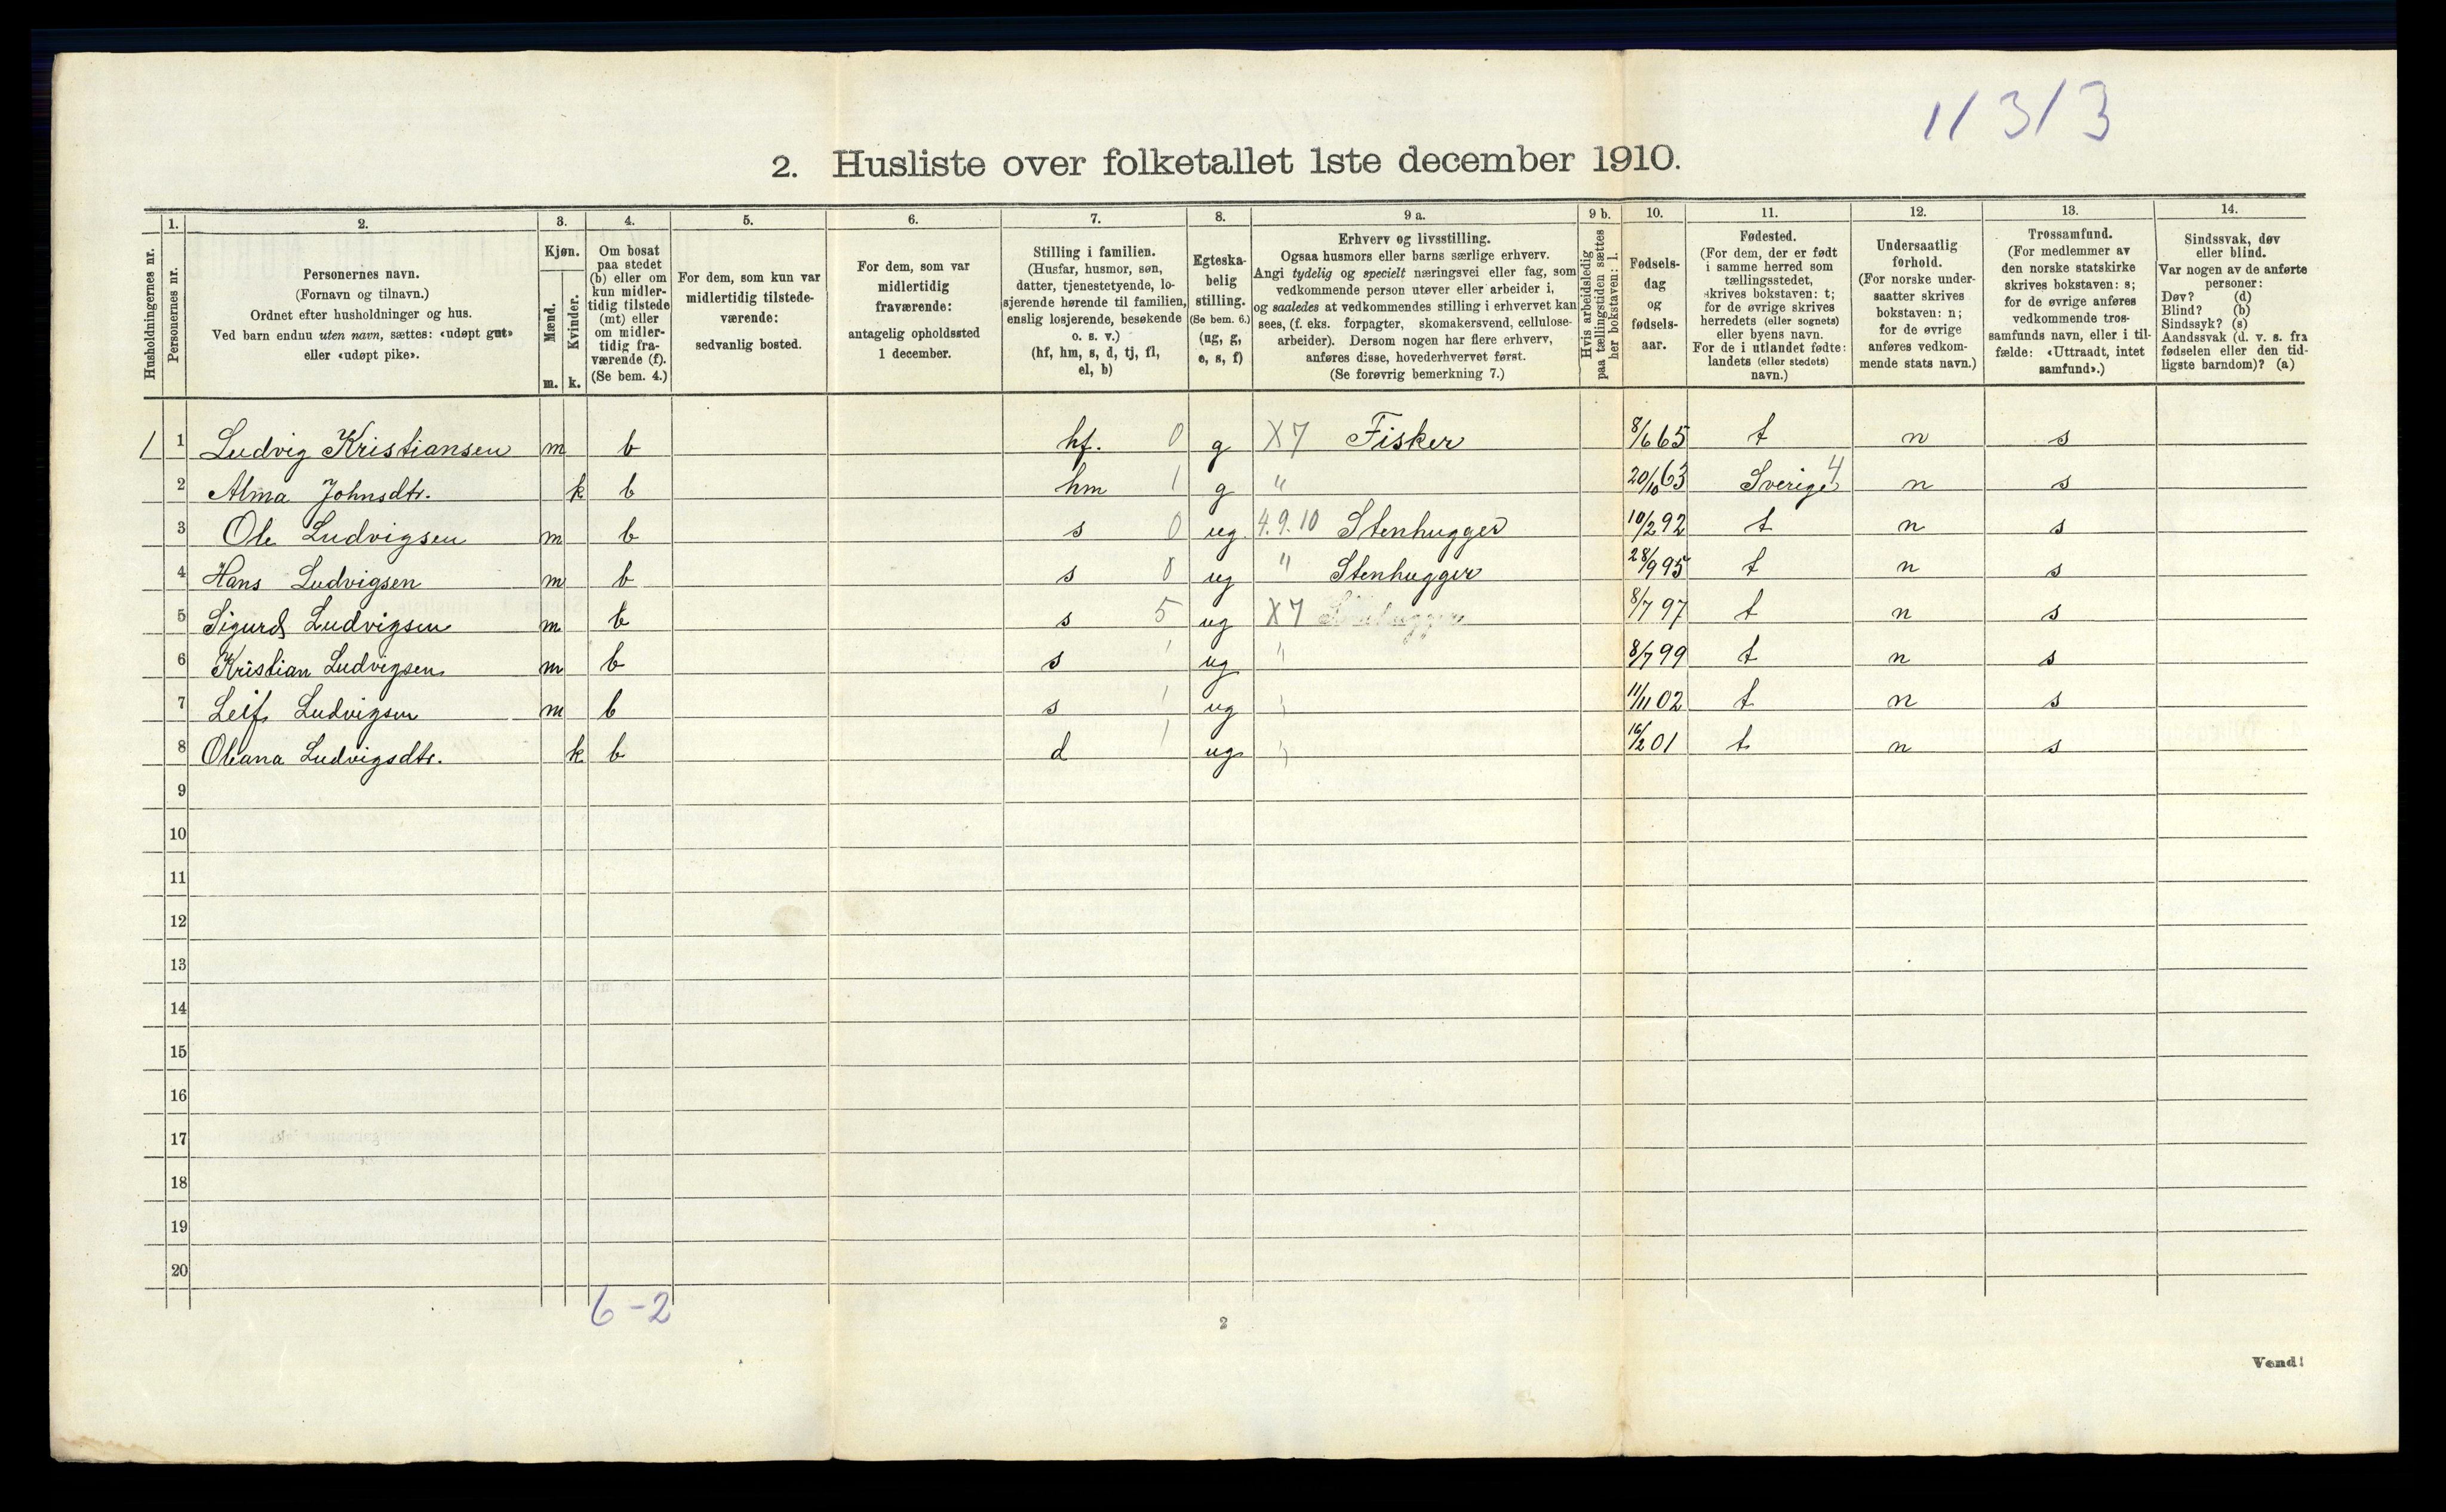 11313
2. Husliste over folketallet 1ste december 1910.
Husholdningernes nr.
1. Personernes nr.
2. Personernes navn. (Fornavn og tilnavn.) Ordnet efter husholdninger og hus. Ved barn endnu uten navn, sættes: «udøpt gut» eller «udøpt pike».
3. Kjøn. Mænd. m. Kvinder. k.
4. Om bosat paa stedet (b) eller om kun midler- tidig tilstede (mt) eller om midler- tidig fra- værende (f). (Se bem. 4.)
5. For dem, som kun var midlertidig tilstede- værende: sedvanlig bosted.
6. For dem, som var midlertidig fraværende: antagelig opholdssted 1 december.
7. Stilling i familien. (Husfar, husmor, søn, datter, tjenestetyende, lo- sjerende hørende til familien, enslig losjerende, besøkende o. s. v.) (hf, hm, s, d, tj, fl, el, b)
8. Egteska- belig stilling. (Se bem. 6.) (ug, g, e, s, f)
9 a. Erhverv og livsstilling. Ogsaa husmors eller barns særlige erhverv. Angi tydelig og specielt næringsvei eller fag, som vedkommende person utøver eller arbeider i, og saaledes at vedkommendes stilling i erhvervet kan sees, (f. eks. forpagter, skomakersvend, cellulose- arbeider). Dersom nogen har flere erhverv, anføres disse, hovederhvervet først. (Se forøvrig bemerkning 7.)
9 b. Hvis arbeidsledig paa tællingstiden sættes her bokstaven: l.
10. Fødsels- dag og fødsels- aar.
11. Fødested. (For dem, der er født i samme herred som tællingsstedet, skrives bokstaven: t; for de øvrige skrives herredets (eller sognets) eller byens navn. For de i utlandet fødte: landets (eller stedets) navn.)
12. Undersaatlig forhold. (For norske under- saatter skrives bokstaven: n; for de øvrige anføres vedkom- mende stats navn.)
13. Trossamfund. (For medlemmer av den norske statskirke skrives bokstaven: s; for de øvrige anføres vedkommende tros- samfunds navn, eller i til- fælde: «Uttraadt, intet samfund».)
14. Sindssvak, døv eller blind. Var nogen av de anførte personer: Døv? (d) Blind? (b) Sindssyk? (s) Aandssvak (d. v. s. fra fødselen eller den tid- ligste barndom)? (a)
1 1 Ludvig Kristiansen m b hf. 0 g X7 Fisker 8/6 65 t n s
2 Alma Johnsdtr. k b hm 1 g " 20/10 63 Sverige 4 n s
3 Ole Ludvigsen m b s 0 ug 4.9.10 Stenhugger 10/2 92 t n s
4 Hans Ludvigsen m b s 0 ug " Stenhugger 28/9 95 t n s
5 Sigurd Ludvigsen m b s 5 ug X7 8/7 97 t n s
6 Kristian Ludvigsen m b s 1 ug " 8/7 99 t n s
7 Leif Ludvigsen m b s 1 ug " 11/11 02 t n s
8 Oleana Ludvigsdtr. k b d 1 ug " 16/2 01 t n s
9
10
11
12
13
14
15
16
17
18
19
20
6-2
2
Vend!